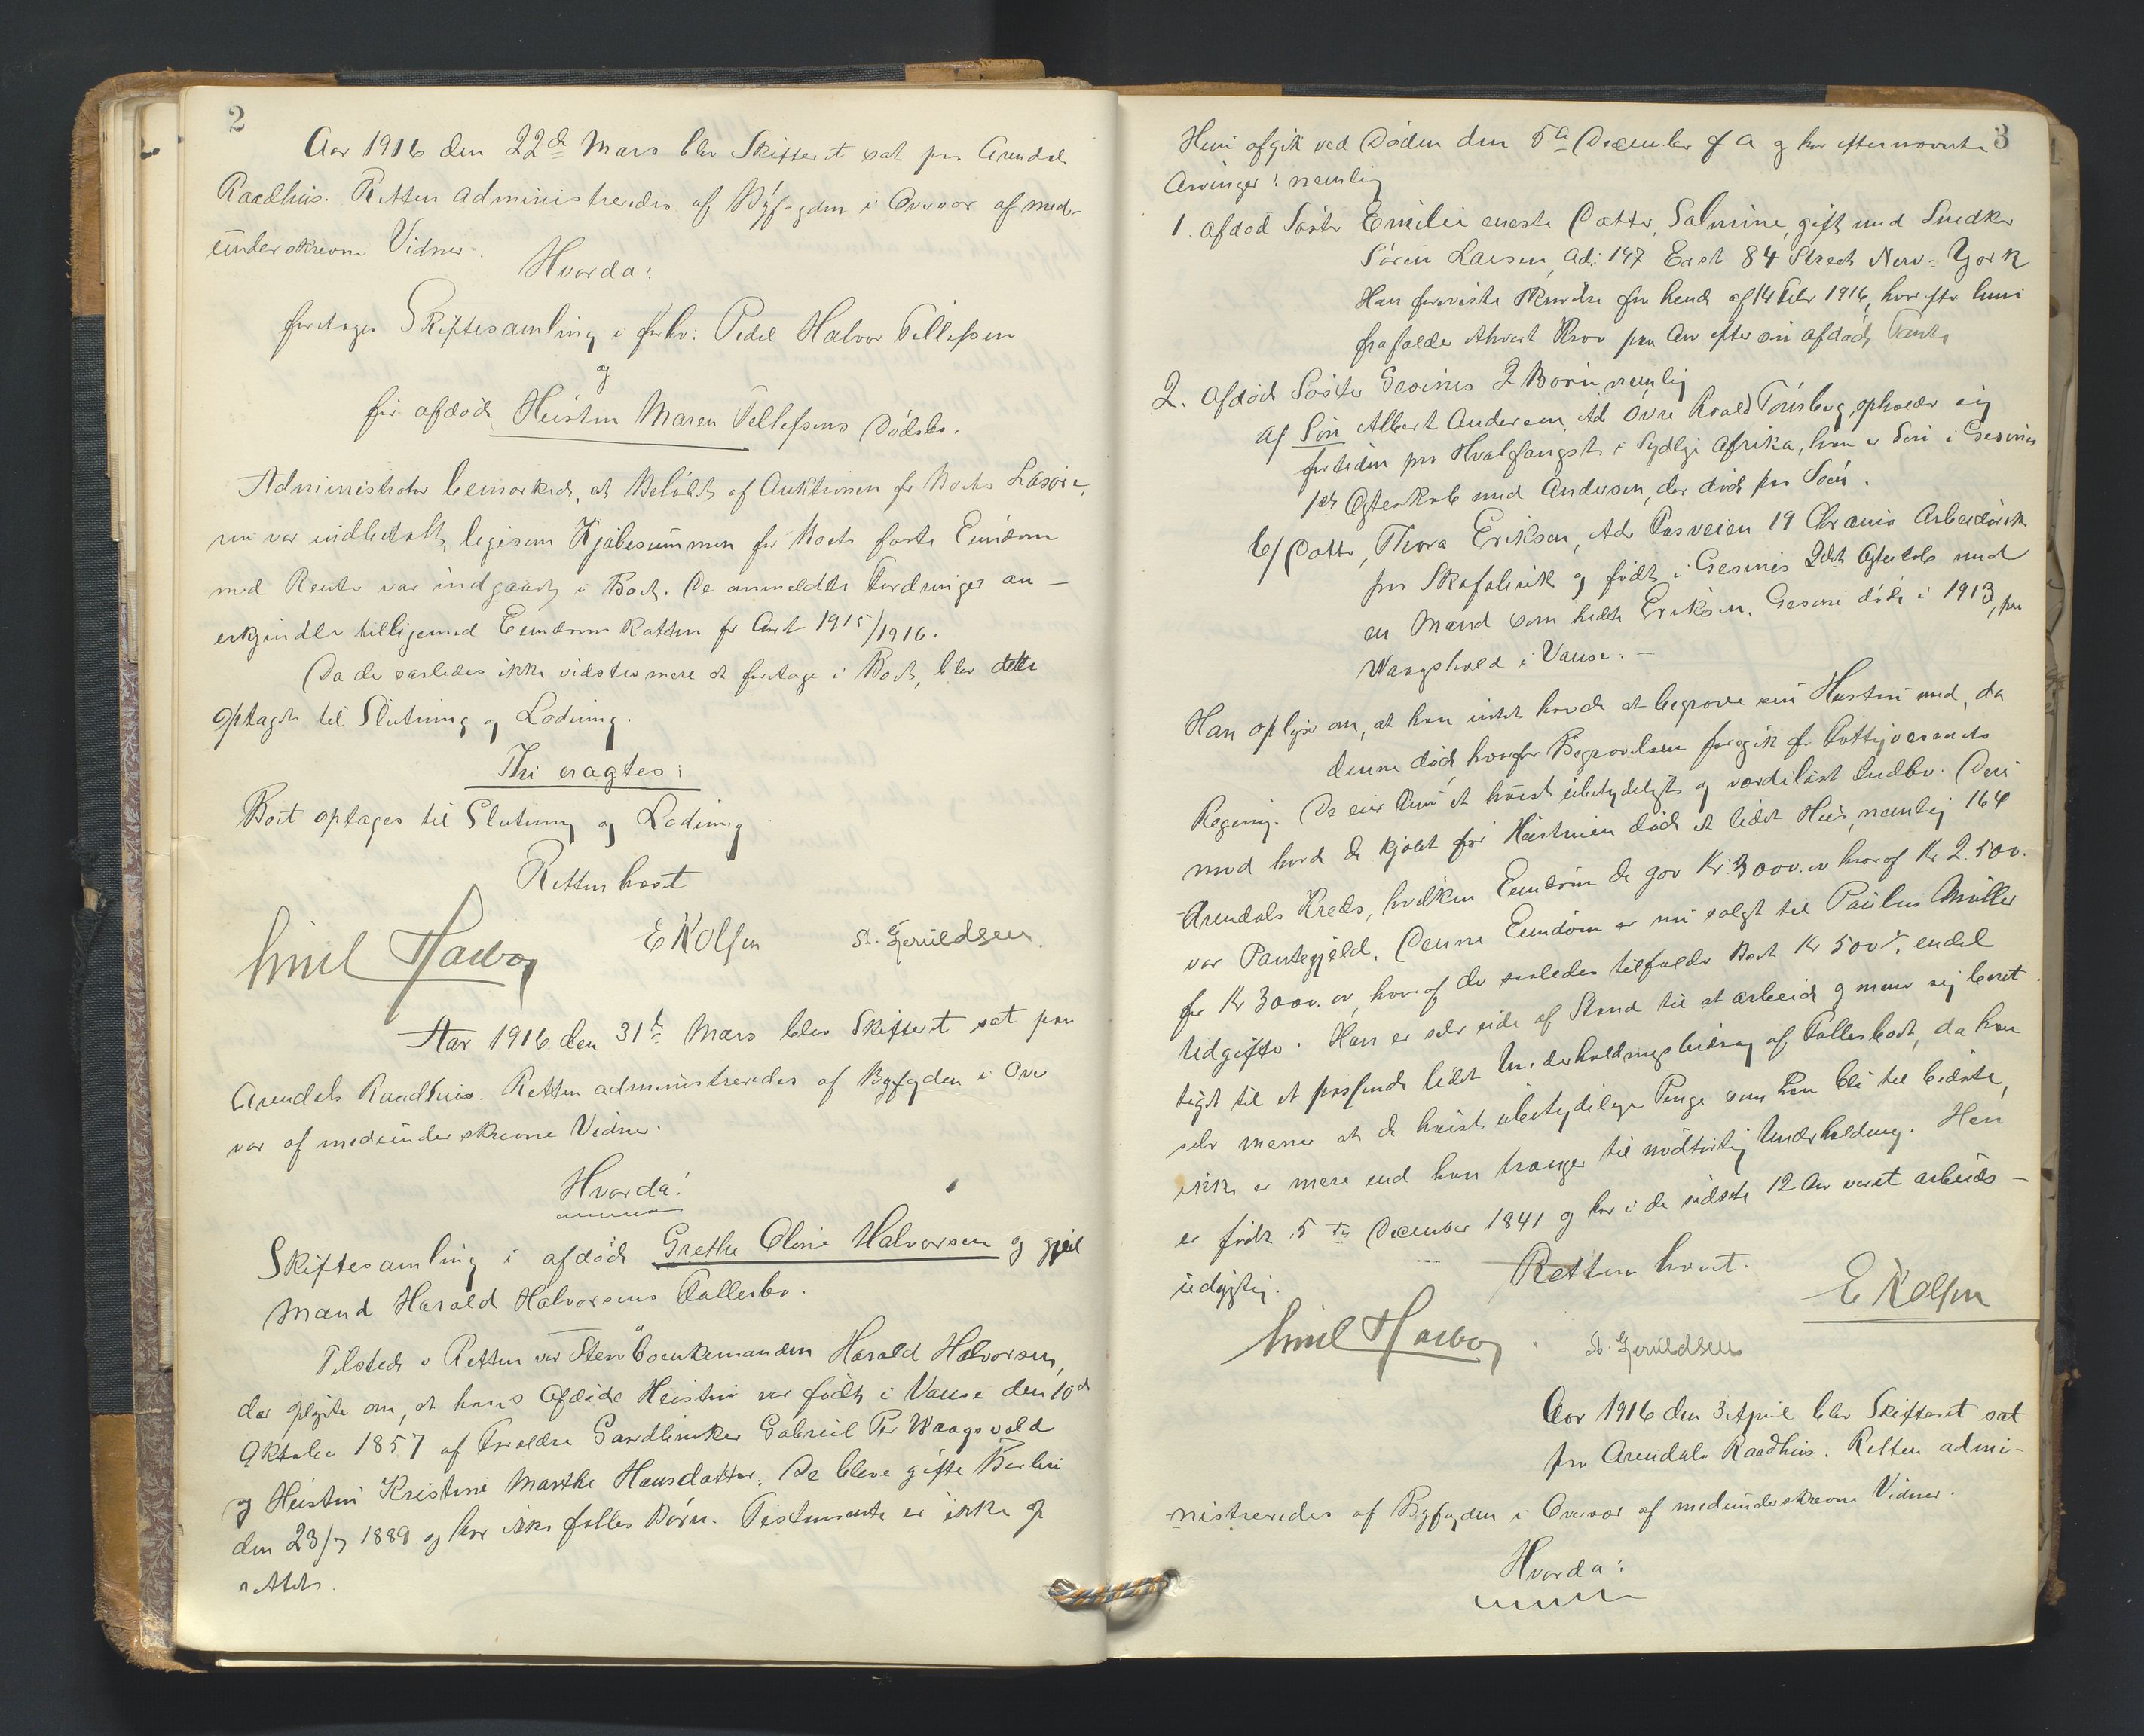 2
Aar 1916 den 22de Mars blev Skifteret sat paa Arendals
Raadhus. Retten administreredes af Byfogden i Overvær af med-
underskrevne Vidner.
Hvorda:
foretages Skiftesamling i fhv: Pedel Halvor Tellefsen
og
hs. afdøde Hustru Maren Tellefsens Dødsbo.
Administrator bemærkede, at Beløbet af Auktionen for Boets Løsøre,
nu var indbetalt, ligesom Kjøbesummen for Boets faste Eiendom
med Renter var indgaaet i Boet. De anmeldte Fordringer an-
erkjendes tilligemed Eiendomsskatten for Aaret 1915/1916.
Da der saaledes ikke vidstes mere at foretage i Boet, blev dette
optaget til Slutning og Lodning.
Thi eragtes:
Boet optages til Slutning og Lodning
Retten hævet
Emil Harboe EKOlsen St. Gjeruldsen.
Aar 1916 den 31te Mars blev Skifteret sat paa
Arendals Raadhus. Retten administreredes af Byfogden i Over
vær af medunderskrevne Vidner.
Hvorda!
Skiftesamling i afdøde Grethe Oline Halvorsen og gjenl
Mand Harald Halvorsens Fællesbo.
Tilstede i Retten var Harald Halvorsen,
der oplyste om, at hans afdøde Hustru var født i Vanse den 10de
Oktober 1857 af Forældre Gaardbruker Gabriel Per Waagsvold
og Hustru Kristine Marthe Hansdatter. De bleve gifte Berlin
den 23/7 1889 og har ikke fælles Børn. Testamente er ikke op
rettet.
3
Hun afgik ved Døden den 5te December f A og har efternævnte
Arvinger: nemlig
1. afdød Søster Emilie eneste Datter, Salmine, gift med Snedker
Sören Larsen, Ad: 147 East 84 Street New-York
Han foreviste Skrivelse fra hende af 14 Febr 1916, hvorefter hun
frafalder ethvert Krav paa Arv efter sin afdøde Tante
2. Afdød Søster Gesines 2 Børn, nemlig
a/ Søn Albert Andersen, Ad Övre Raald Tönsberg, opholder sig
fortiden paa Hvalfangst i Sydlige Afrika, han er Søn i Gesines
1ste Ægteskab med Andersen, der døde paa Søen.
b/ Datter, Thora Eriksen, Adr Aasveien 19 Chrania Arbeiderske
paa Skofabrik og født i Gesines 2det Ægteskab med
en Mand som hedte Eriksen. Gesine døde i 1913, paa
Waagsvold i Vanse. -
Han oplyser om, at han intet havde at begrave sin Hustru med, da
denne døde hvorfor Begravelsen foregik for Fattigvæsenets
Regning. De eier kun et høist ubetydeligt og værdiløst Indbo. Der-
imod havde de kjøbt før Hustruen døde et lidet Hus, nemlig 164
Arendals Kreds, hvilken Eiendom de gav Kr 3000.00 hvoraf Kr 2.500.
var Pantegjæld. Denne Eiendom er nu solgt til Paulus Müller
for Kr 3000.00, hvoraf der saaledes tilfalder Boet Kr 500 endel
Udgifter. Han er selv ude af Stand til at arbeide og mener sig beret
tiget til et passende lidet Underholdningsbidrag af Fællesboet, da han
selv mener at de høist ubetydelige Penge som kan bli til bedste,
ikke er mere end han trænger til nødtørftig Underholdning. Han
er født 5te December 1841 og har i de sidste 12 Aar været arbeids-
udygtig.
Retten hævet.
Emil Harboe. St. Gjeruldsen EKOlsen
Aar 1916 den 3 April blev Skifteret sat
paa Arendals Raadhus. Retten admi-
nistreredes af Byfogden i Overvær af medunderskrevne Vidner.
Hvorda: